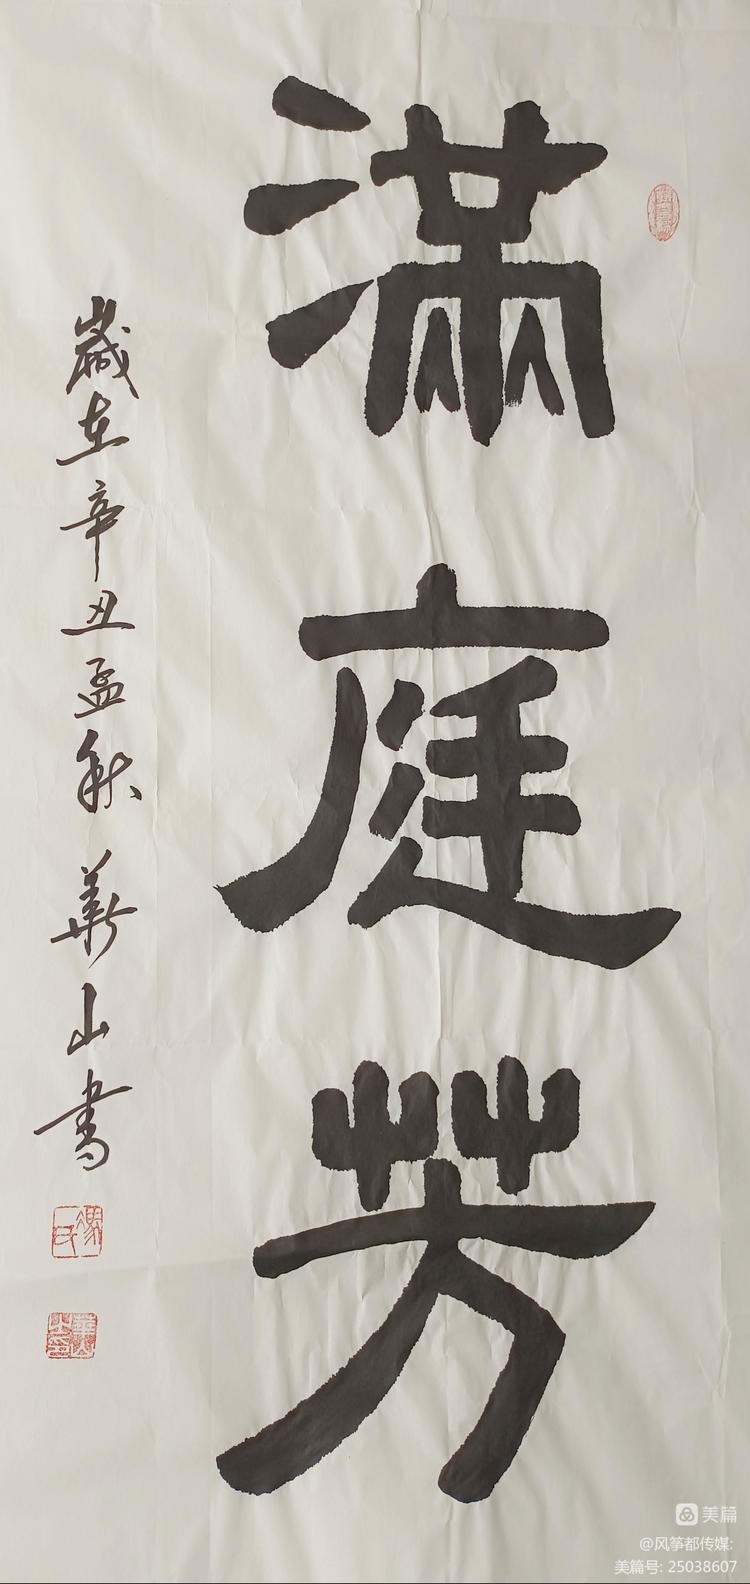 滿庭芳
歲在辛丑孟秋華山書
美篇
@风筝都传媒:
美篇号: 25038607